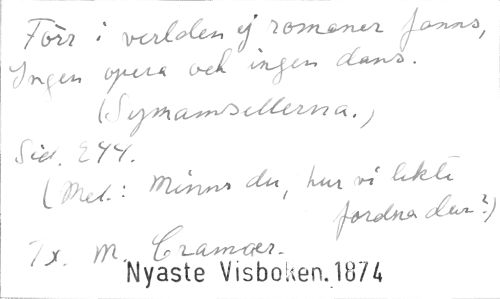 Förr i verlden ej romaner fanns,
Ingen opera och ingen dans.
(Symamsellerna.)
Sid. 244.
(Mel.: Minns du, hur vi lekte
fordna dar?)
Tx. M. Cramær.
Nyaste Visboken.1874